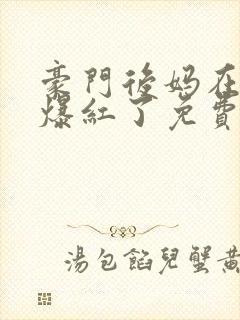 豪門後媽在
爆紅了免費
湯包餡兒蟹黃